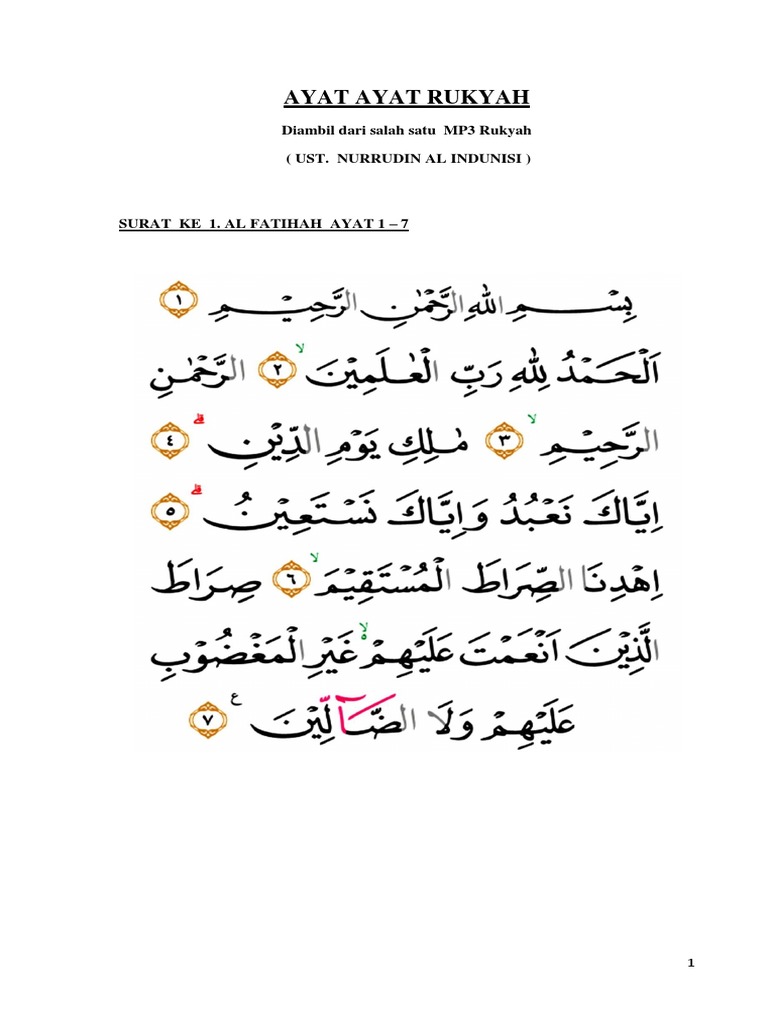 AYAT AYAT RUKYAH
Diambil dari salah satu MP3 Rukyah
( UST. NURRUDIN AL INDUNISI )
SURAT KE 1. AL FATIHAH AYAT 1 – 7
بِسْمِ اللهِ الرَّحْمٰنِ الرَّحِيْمِ ١
اَلْحَمْدُ لِلهِ رَبِّ الْعٰلَمِيْنَۙ ٢ الرَّحْمٰنِ
الرَّحِيْمِۙ ٣ مٰلِكِ يَوْمِ الدِّيْنِۗ ٤
اِيَّاكَ نَعْبُدُ وَاِيَّاكَ نَسْتَعِيْنُۗ ٥
اِهْدِنَا الصِّرَاطَ الْمُسْتَقِيْمَۙ ٦ صِرَاطَ
الَّذِيْنَ اَنْعَمْتَ عَلَيْهِمْ ەۙ غَيْرِ الْمَغْضُوْبِ
عَلَيْهِمْ وَلَا الضَّاۤلِّيْنَ ࣖ ٧
1